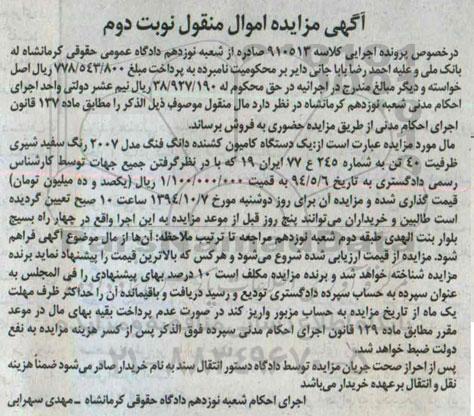 آگهی مزایده اموال منقول نوبت دوم
درخصوص پرونده اجرایی کلاسه ۹۱۰۵۱۳ صادره از شعبه نوزدهم دادگاه عمومی حقوقی کرمانشاه له
بانک ملی و علیه احمد رضا بابا جانی دایر بر محکومیت نامبرده به پرداخت مبلغ ۷۷۸/۵۴۳/۸۰۰ ریال اصل
خواسته و دیگر مبالغ مندرج در اجرائیه در حق محکوم له ۳۸/۹۲۷/۱۹۰ ریال نیم عشر دولتی واحد اجرای
احکام مدنی شعبه نوزدهم کرمانشاه در نظر دارد مال منقول موصوف ذیل الذکر را مطابق ماده ۱۳۷ قانون
اجرای احکام مدنی از طریق مزایده حضوری به فروش برساند.
مال مورد مزایده عبارت است از: یک دستگاه کامیون کشنده دانگ فنگ مدل ۲۰۰۷ رنگ سفید شیری
ظرفیت ۴۰ تن به شماره ۲۴۵ ع ۷۷ ایران ۱۹ که با در نظرگرفتن جمیع جهات توسط کارشناس
رسمی دادگستری به تاریخ ۹۴/۵/۶ به قمیت ۱/۱۰۰/۰۰۰/۰۰۰ ریال (یکصد و ده میلیون تومان)
قیمت گذاری شده و مزایده آن برای روز دوشنبه مورخ ۱۳۹۴/۱۰/۷ ساعت ۱۰ صبح تعیین گردیده
است طالبین و خریداران می‌توانند پنج روز قبل از موعد مزایده به این اجرا واقع در چهار راه بسیج
بلوار بنت الهدی طبقه دوم شعبه نوزدهم مراجعه تا ترتیب ملاحظه: آن‌ها از مال موضوع آگهی فراهم
شود. مزایده از قیمت ارزیابی شده شروع می‌شود و هرکس که بالاترین قیمت را پیشنهاد نماید برنده
مزایده شناخته خواهد شد و برنده مزایده مکلف است ۱۰ درصد بهای پیشنهادی را فی المجلس به
عنوان سپرده به حساب سپرده دادگستری تودیع و رسید دریافت و باقیمانده آن را حداکثر ظرف مهلت
یک ماه از تاریخ مزایده به حساب مزبور واریز کند در صورت عدم پرداخت بقیه بهای مال در موعد
مقرر مطابق ماده ۱۲۹ قانون اجرای احکام مدنی سپرده فوق الذکر پس از کسر هزینه مزایده به نفع
دولت ضبط خواهد شد.
پس از احراز صحت جریان مزایده توسط دادگاه دستور انتقال سند به نام خریدار صادر می‌شود ضمناً هزینه
نقل و انتقال بر عهده خریدار می‌باشد
اجرای احکام شعبه نوزدهم دادگاه حقوقی کرمانشاه - مهدی سهرابی